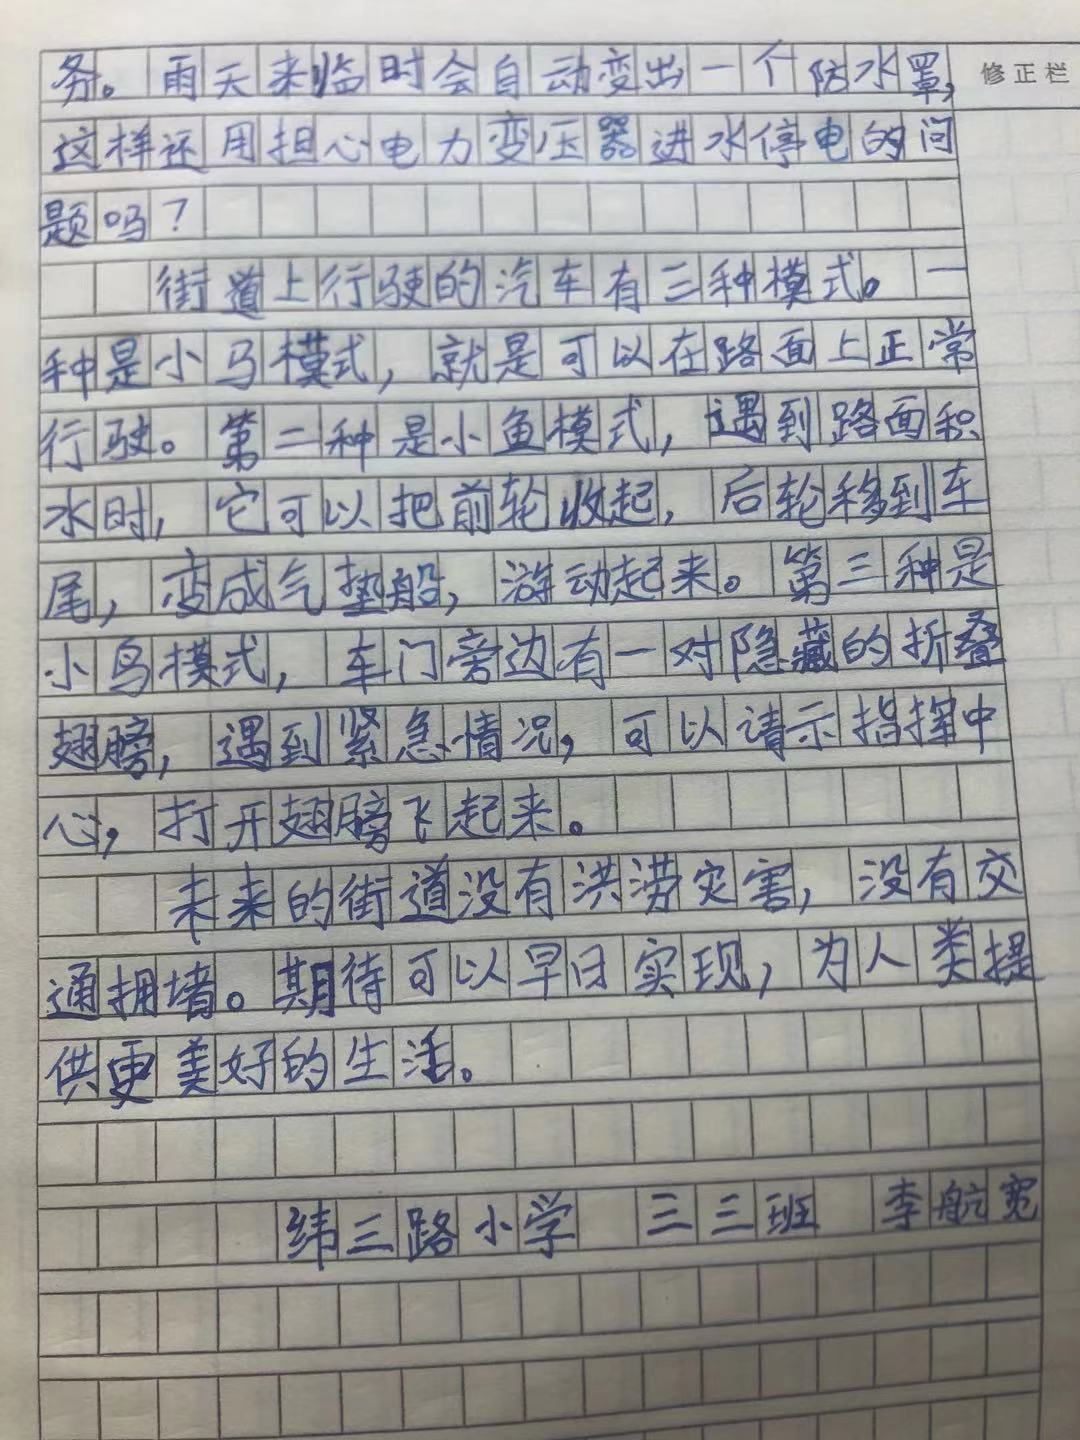 务。雨天来临时会自动变出一个防水罩,
修正栏
这样还用担心电力变压器进水停电的问
题吗?
街道上行驶的汽车有三种模式。一
种是小马模式,就是可以在路面上正常
行驶。第二种是小鱼模式,遇到路面积
水时,它可以把前轮收起,后轮移到车
尾,变成气垫船,游动起来。第三种是
小鸟模式,车门旁边有一对隐藏的折叠
翅膀,遇到紧急情况,可以请示指挥中
心,打开翅膀飞起来。
未来的街道没有洪涝灾害,没有交
通拥堵。期待可以早日实现,为人类提
供更美好的生活。
纬三路小学 三三班 李航宽